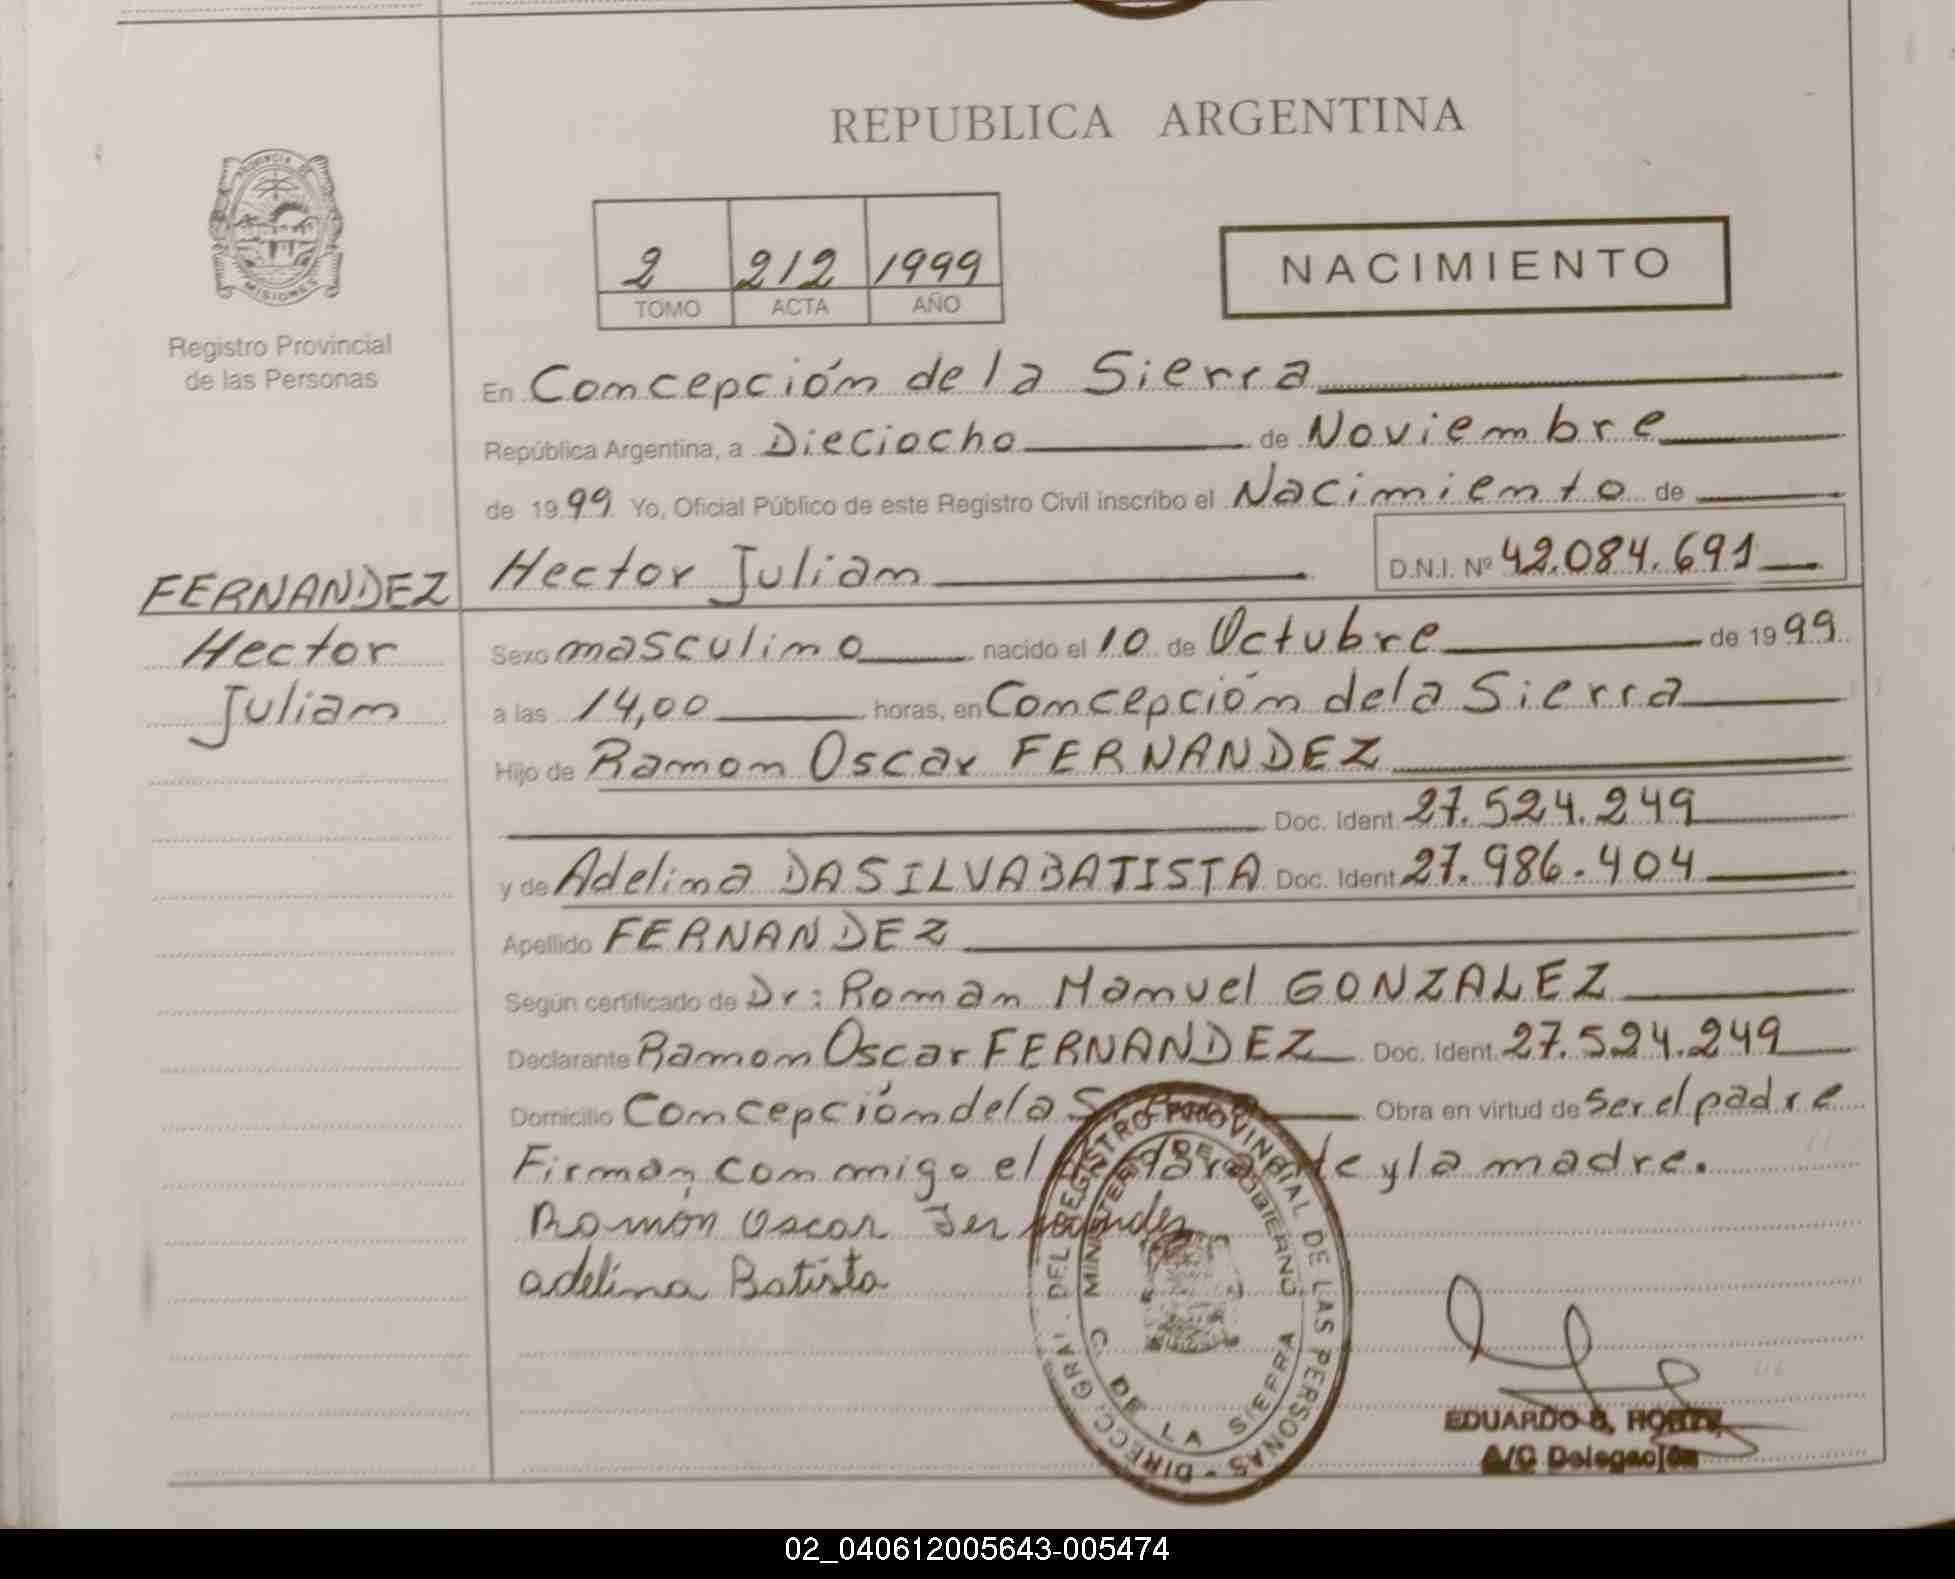 REPUBLICA ARGENTINA
PROVINCIA DE
MISIONES
Registro Provincial
de las Personas
2 212 1999
TOMO ACTA AÑO
NACIMIENTO
En Concepción de la Sierra
República Argentina, a Dieciocho de Noviembre
de 1999 Yo, Oficial Público de este Registro Civil inscribo el Nacimiento de
Hector Julian D.N.I. Nº 42.084.691
FERNANDEZ
Hector
Julian
Sexo masculino nacido el 10 de Octubre de 1999
a las 14,00 horas, en Concepción de la Sierra
Hijo de Ramon Oscar FERNANDEZ
Doc. Ident. 27.524.249
y de Adelina DA SILVA BATISTA Doc. Ident. 27.986.404
Apellido FERNANDEZ
Según certificado de Dr: Roman Manuel GONZALEZ
Declarante Ramon Oscar FERNANDEZ Doc. Ident. 27.524.249
Domicilio Concepción de la Obra en virtud de ser el padre
Firman conmigo el y la madre.
Ramón Oscar Fernandez
adelina Batista
DIRECC. GRAL. DEL REGISTRO PROVINCIAL DE LAS PERSONAS
MINISTERIO DE GOBIERNO
C. DE LA SIERRA
EDUARDO
A/C Delegación
02_040612005643-005474